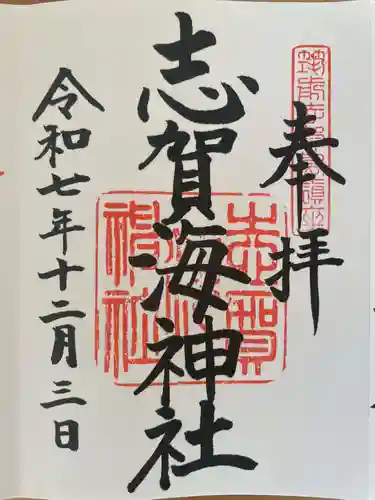 奉拝
志賀海神社
令和七年十二月三日
志賀海神社